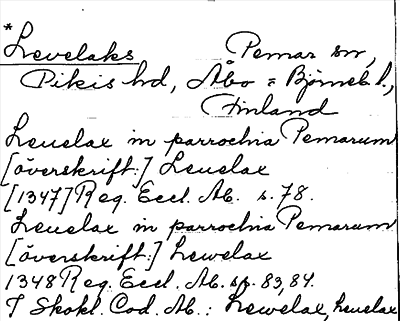 *Levelaks Pemar sn,
Pikis hd, Åbo = Björneb. l.,
Finland
Leuelax in parrochia Pemarum
[överskrift:] Leuelax
[1347] Reg. Eccl. Ab. s. 78.
Leuelax in parrochia Pemarum
[överskrift:] Lewelax
1348 Reg. Eccl. Ab. sp. 83, 84.
I Skokl. Cod. Ab.: Lewelax, Leuelax